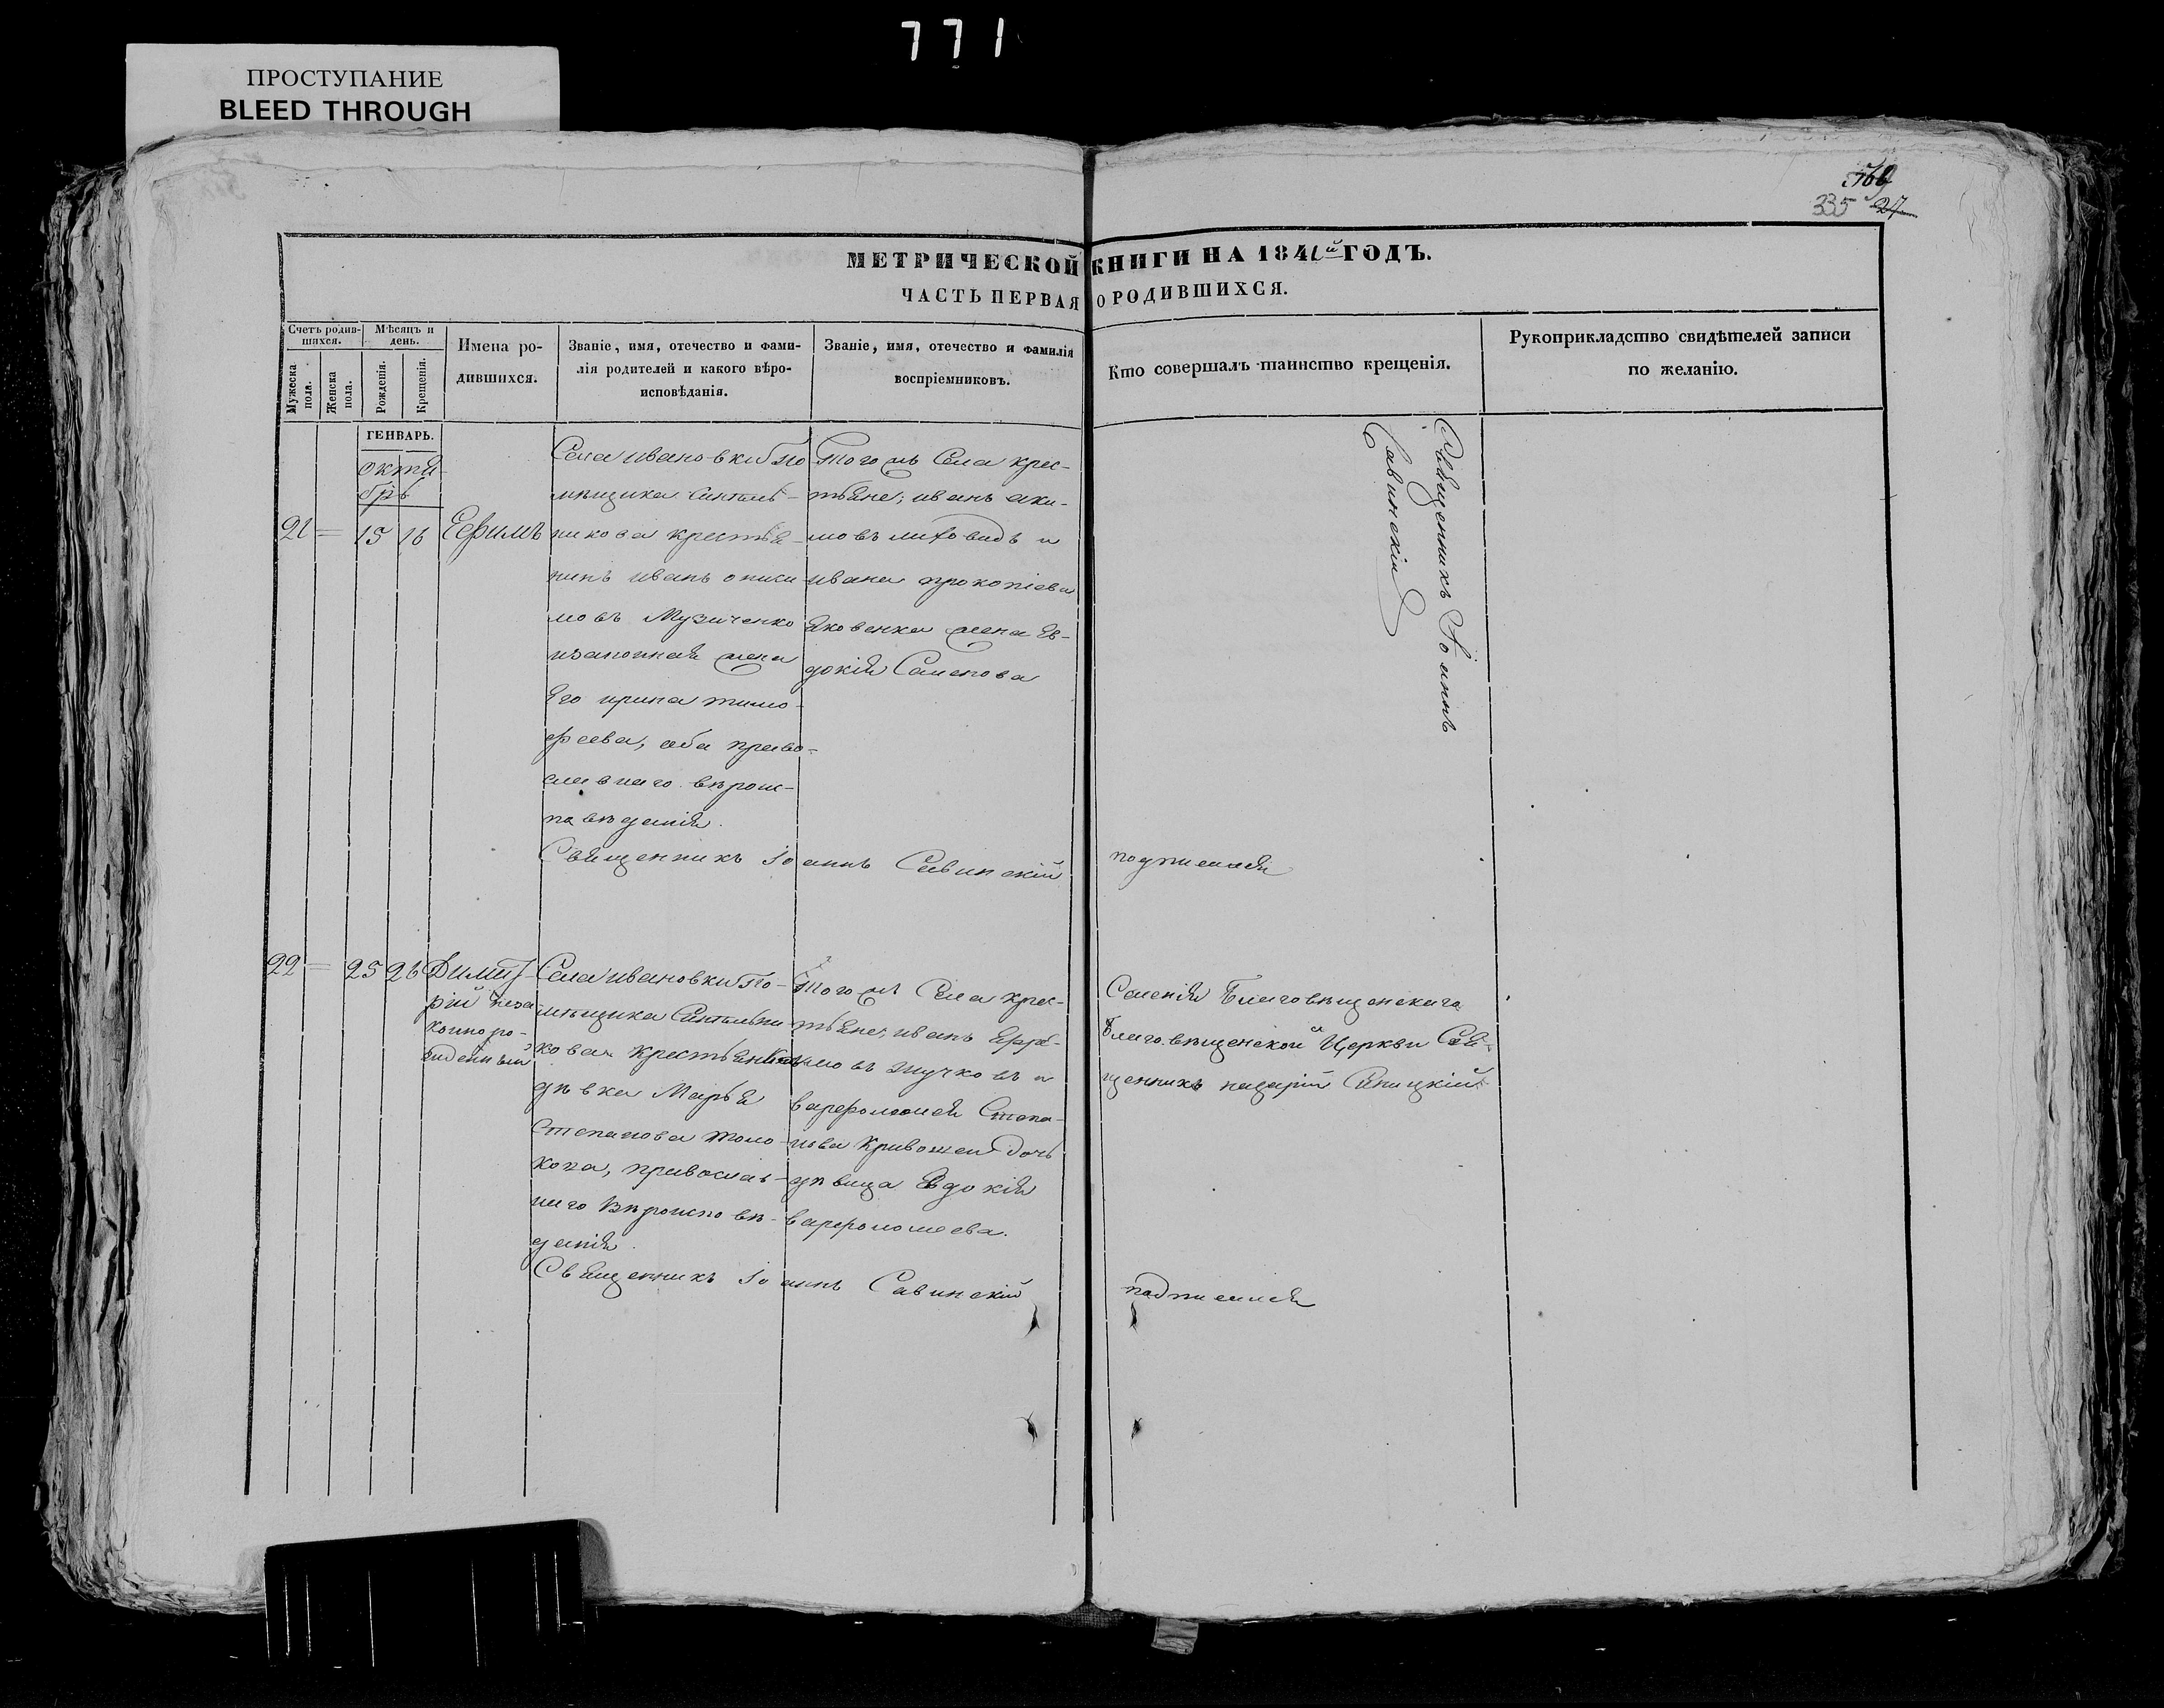 771
ПРОСТУПАНИЕ
BLEED THROUGH
335 27
МЕТРИЧЕСКОЙ КНИГИ НА 1841й ГОДЪ.
ЧАСТЬ ПЕРВАЯ О РОДИВШИХСЯ.
Счетъ родив-
шихся.
Мужеска
пола.
Женска
пола.
Мѣсяцъ и
день.
Рожденія.
Крещенія.
Имена ро-
дившихся.
Званіе, имя, отечество и фами-
лія родителей и какого вѣро-
исповѣданія.
Званіе, имя, отечество и фамилія
воспріемниковъ.
Кто совершалъ таинство крещенія.
Рукоприкладство свидѣтелей записи
по желанію.
ГЕНВАРЬ.
октя-
брь
21 = 15 16 Ефимъ
Села Ивановки по
мѣщика Синтель-
никова крестья-
нинъ иванъ ониси
мовъ Музиченко
изаконная жена
Его ирина тимо-
феева, оба право-
славнаго вѣроис-
повѣданія.
Того жъ Села крес-
тьяне; иванъ аки-
мовъ лиховидъ и
ивана прокопіева
Яковенка жена Ев-
докія Семенова
Священникъ Іоаннъ
Савинскій
Священникъ Іоаннъ Савинскій подписался
22 = 25 26 Димит-
рій неза
конноро-
жденный
Села ивановки по-
мѣщика Синтельни-
кова крестьянка
дѣвка Марья
Степанова толо-
кова, православ-
наго вѣроисповѣ-
данія.
Того жъ Села крес-
тьяне; иванъ Ефи-
мовъ жучковъ и
варфоломея Степа-
нова Кривошеи дочь
дѣвица Евдокія
варфоломеева.
Селенія Благовѣщенскаго
Благовѣщенской Церкви Свя-
щенникъ назарій Синицкій
Священникъ Іоаннъ Савинскій подписался